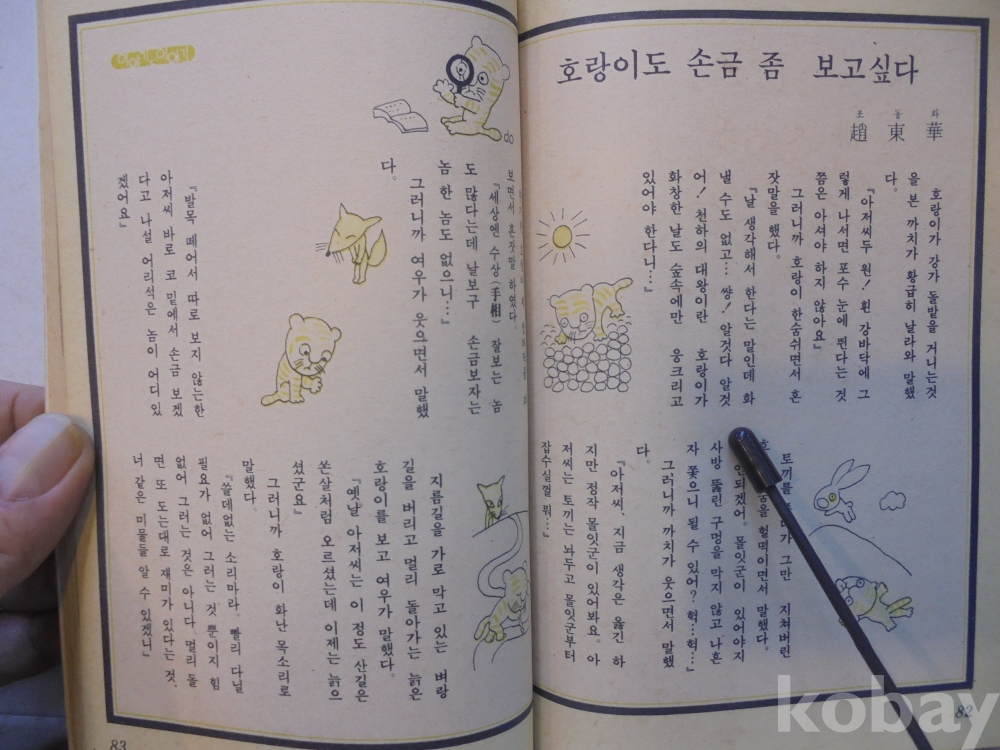 호랑이도 손금 좀 보고싶다
조 동 화
趙 東 華
호랑이가 강가 돌밭을 거니는것
을 본 까치가 황급히 날라와 말했
다.
『아저씨두 원! 훤 강바닥에 그
렇게 나서면 포수 눈에 띈다는 것
쯤은 아셔야 하지 않아요』
그러니까 호랑이 한숨쉬면서 혼
잣말을 했다.
『날 생각해서 한다는 말인데 화
낼 수도 없고… 쌍! 알것다 알것
어! 천하의 대왕이란 호랑이가
화창한 날도 숲속에만 웅크리고
있어야 한다니…』
토끼를 그만 지쳐버린
헐떡이면서 말했다.
안되겠어. 몰잇군이 있어야지
사방 뚫린 구멍을 막지 않고 나혼
자 쫓으니 될 수 있어? 헉…헉…』
그러니까 까치가 웃으면서 말했
다.
『아저씨、지금 생각은 옳긴 하
지만 정작 몰잇군이 있어봐요. 아
저씨는 토끼는 놔두고 몰잇군부터
잡수실껄 뭐…』
82
do
보면서 혼잣말 하였다.
『세상엔 수상(手相) 잘보는 놈
도 많다는데 날보구 손금보자는
놈 한 놈도 없으니…』
그러니까 여우가 웃으면서 말했
다.
『발목 떼어서 따로 보지 않는한
아저씨 바로 코 밑에서 손금 보겠
다고 나설 어리석은 놈이 어디 있
겠어요』
지름길을 가로 막고 있는 벼랑
길을 버리고 멀리 돌아가는 늙은
호랑이를 보고 여우가 말했다.
『옛날 아저씨는 이 정도 산길은
쏜살처럼 오르셨는데 이제는 늙으
셨군요』
그러니까 호랑이 화난 목소리로
말했다.
『쓸데없는 소리마라. 빨리 다닐
필요가 없어 그러는 것 뿐이지 힘
없어 그러는 것은 아니다 멀리 돌
면 또 도는대로 재미가 있다는 것、
너 같은 미물들 알 수 있겠니』
83
kobay